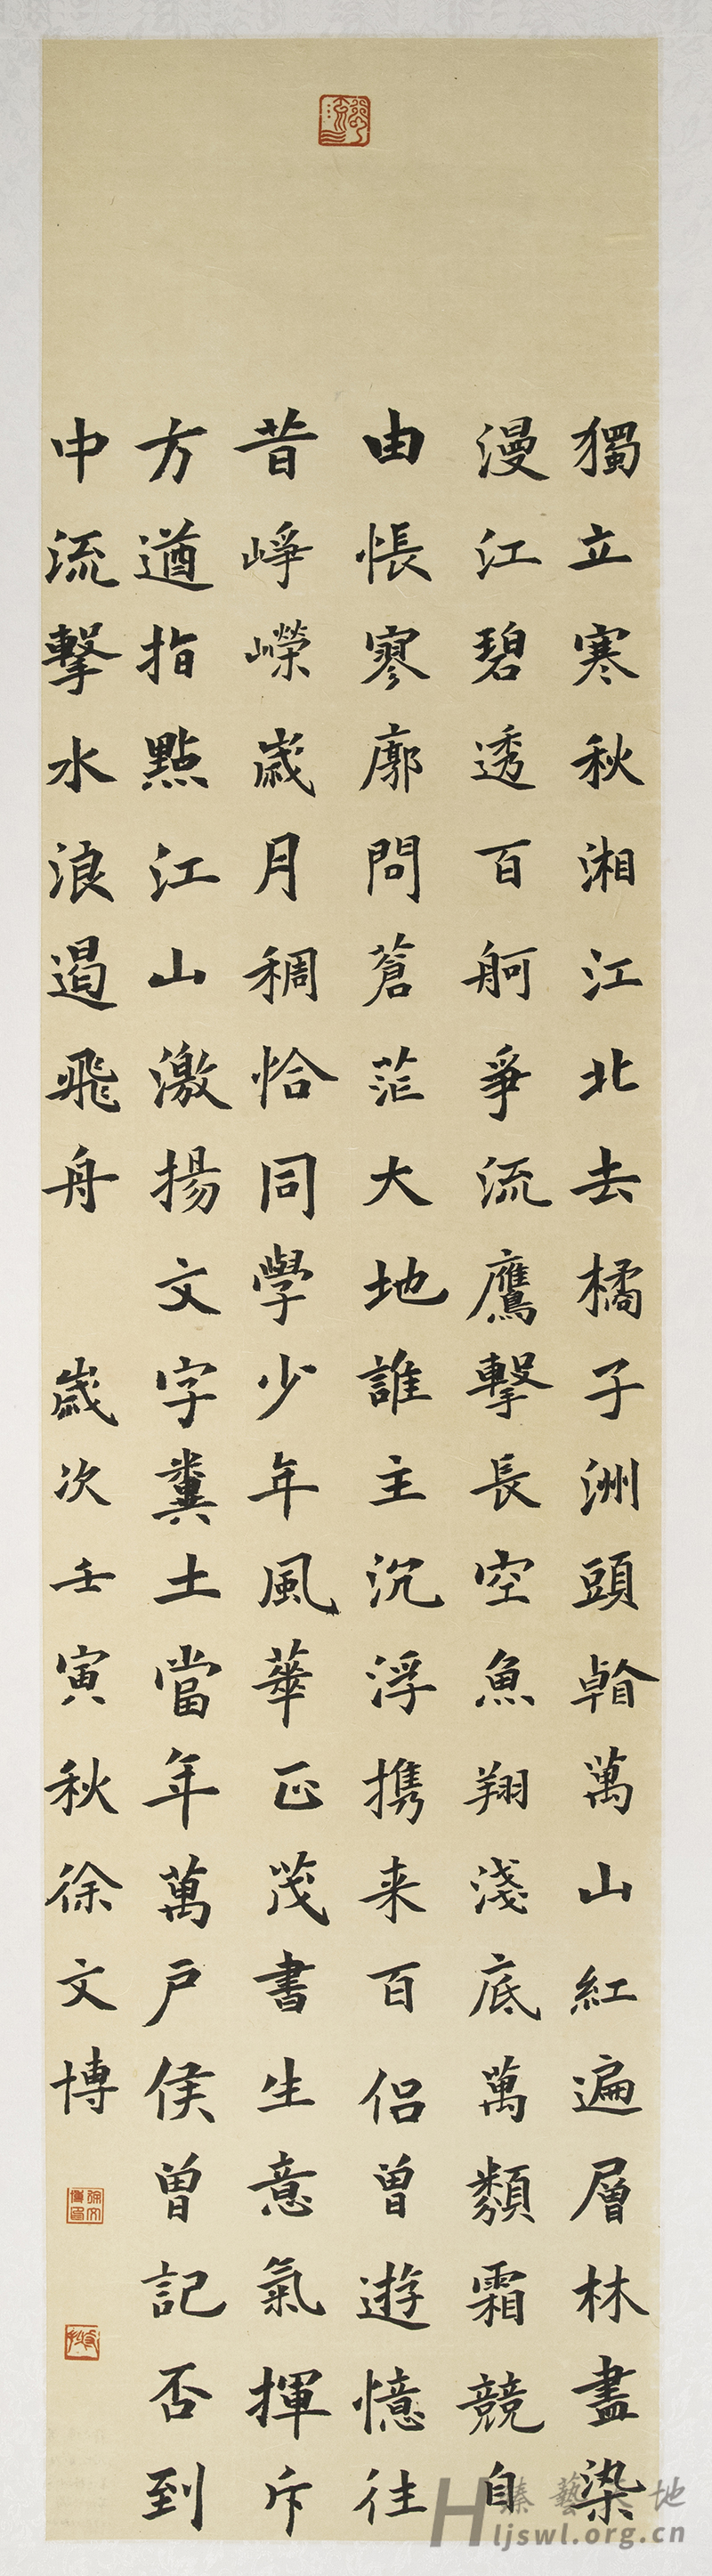 獨立寒秋湘江北去橘子洲頭看萬山紅遍層林盡染
漫江碧透百舸爭流鷹擊長空魚翔淺底萬類霜競自
由悵寥廓問蒼茫大地誰主沉浮攜来百侣曾遊憶往
昔崢嶸歲月稠恰同學少年風華正茂書生意氣揮斥
方遒指點江山激揚文字糞土當年萬户侯曾記否到
中流擊水浪遏飛舟 歲次壬寅秋徐文博
臻藝天地
Hljswl.org.cn